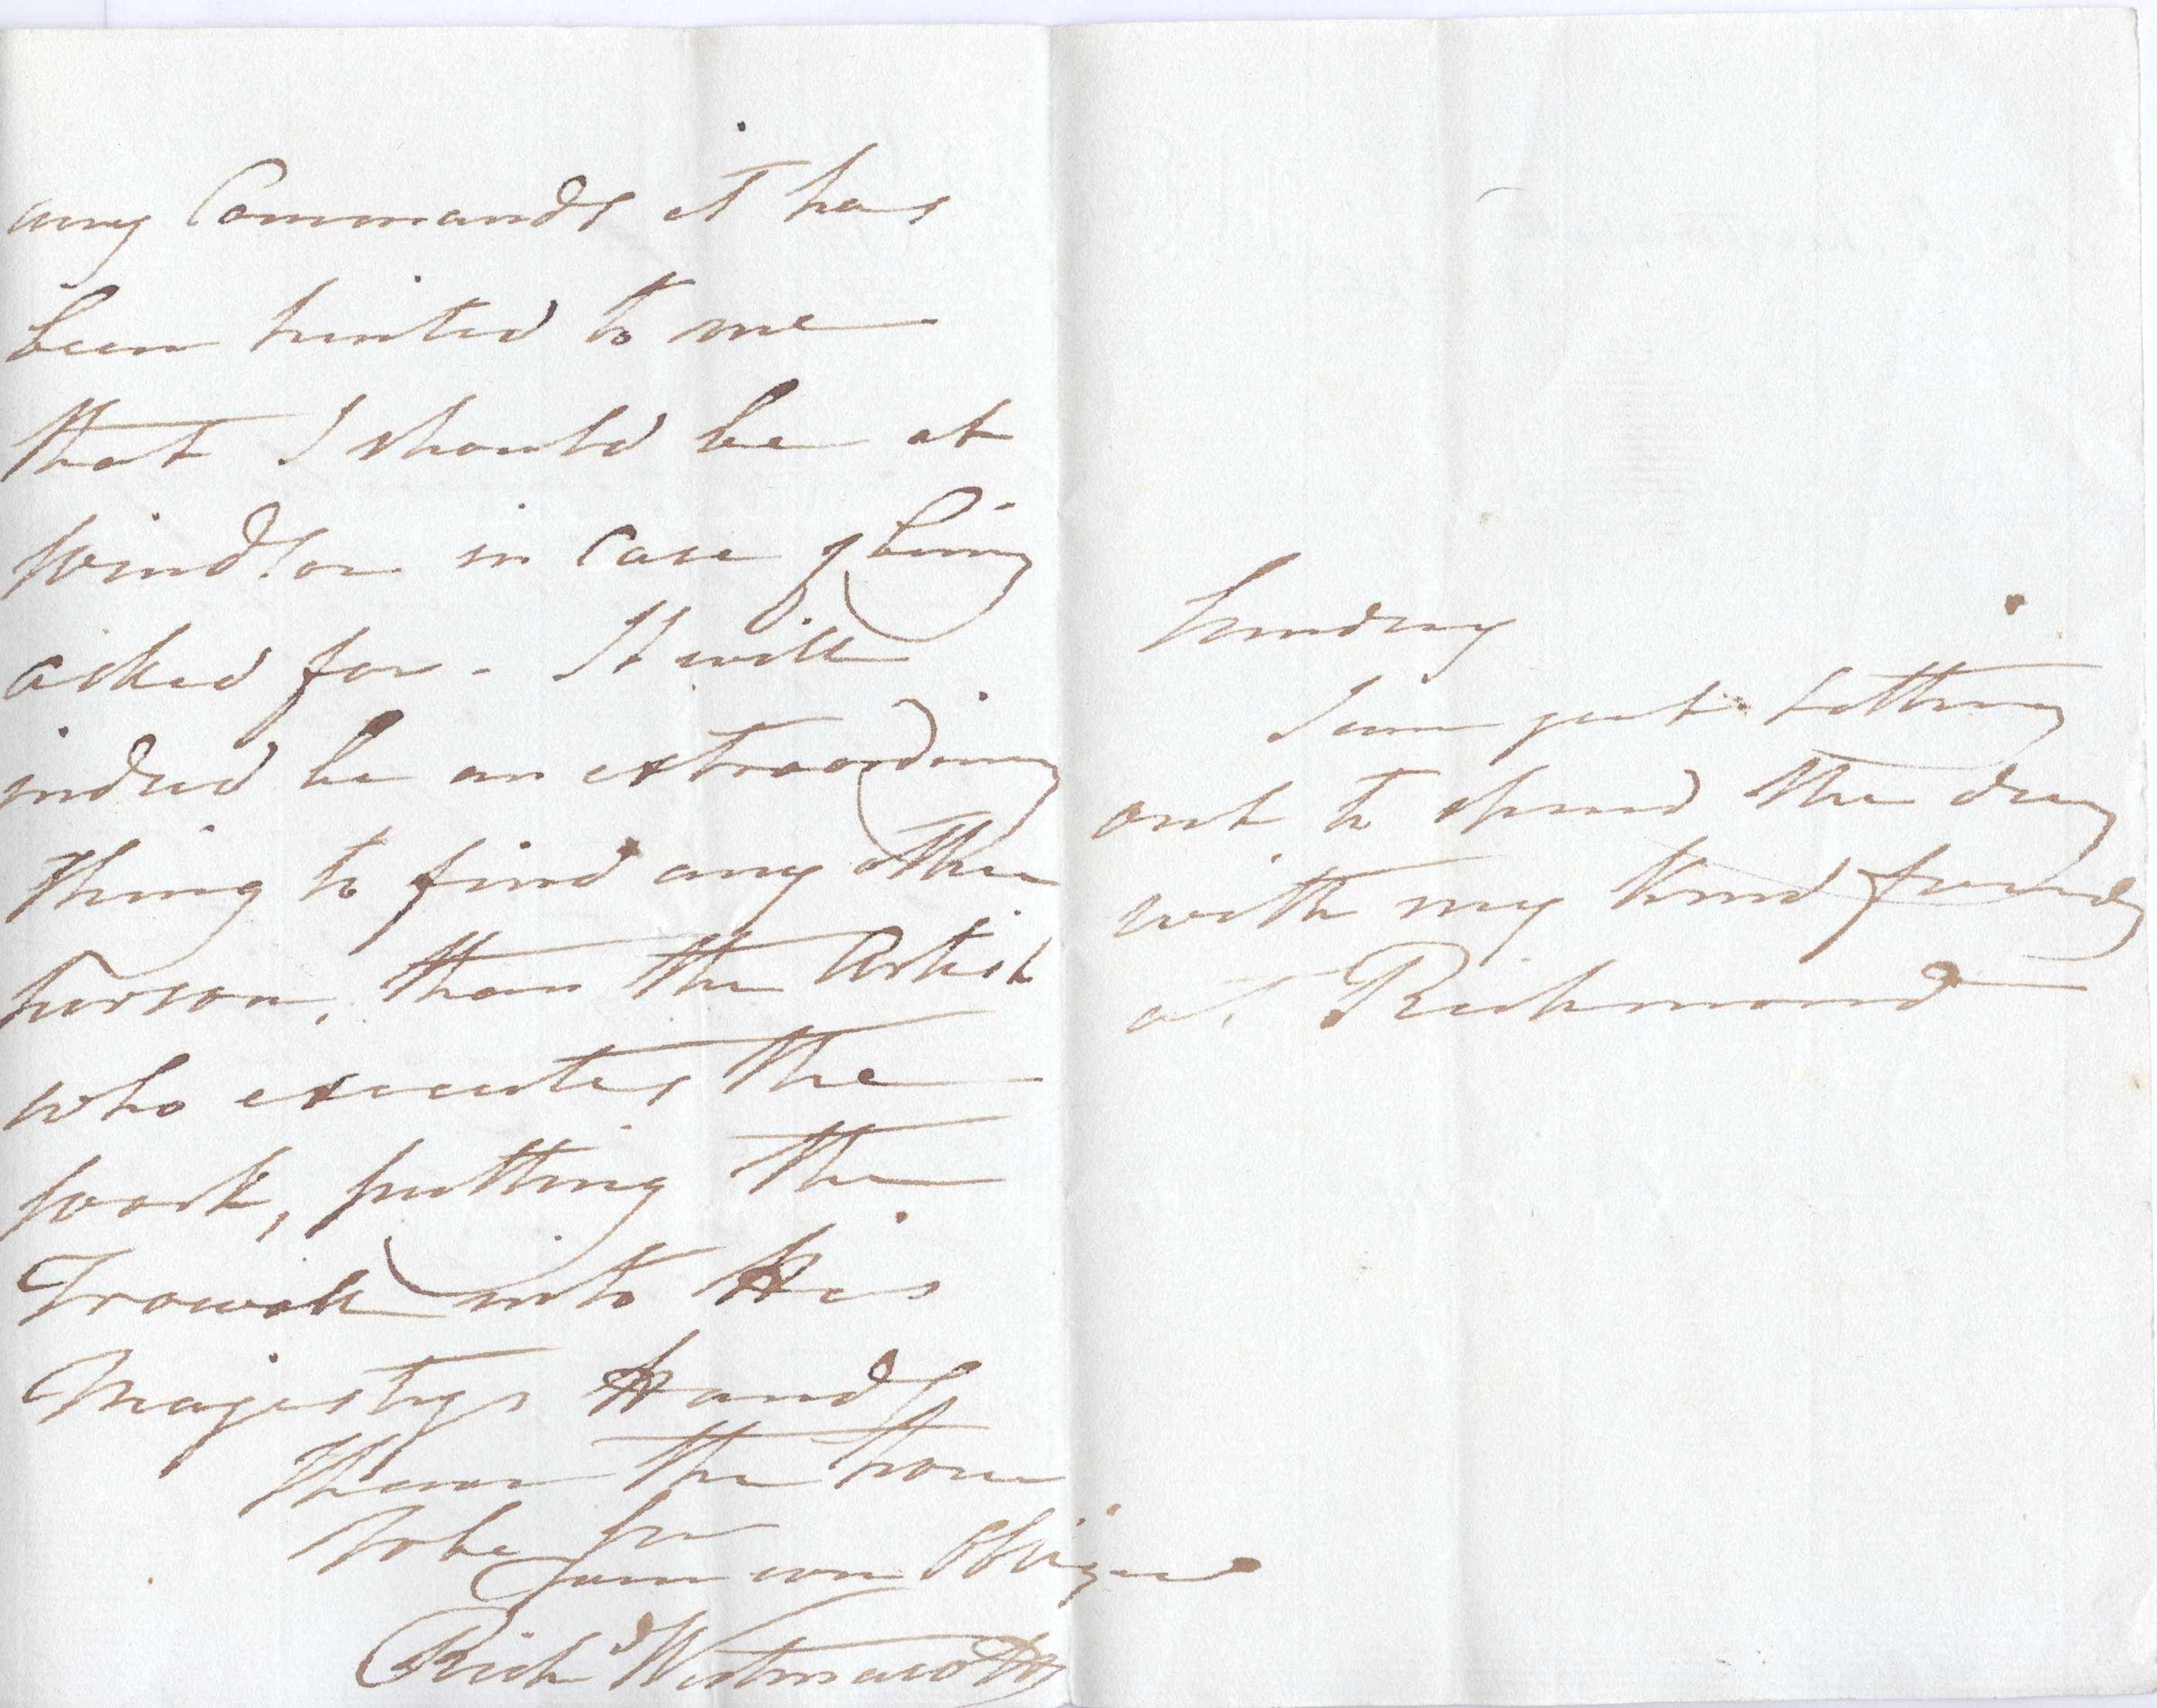 any Commands it has
been hinted to me
that I should be at
Windsor in case of being
asked for - It will
indeed be an extraordinary
thing to find any other
person, than the Artist
who executes the
work, putting the
Trowell into His
Majestys Hands
I have the honor
to be Sir
Your very Obliged
Richd Westmacott
Sunday
I am just setting
out to spend the day
with my kind friends
at Richmond